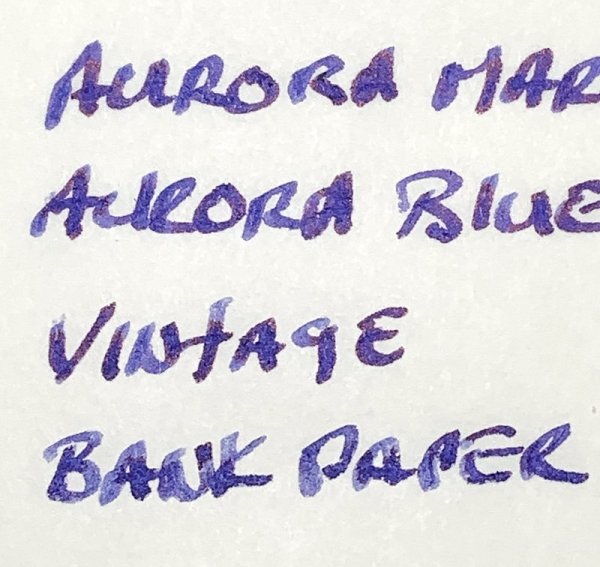 AURORA MAR
AURORA BLUE
VINTAGE
BANK PAPER